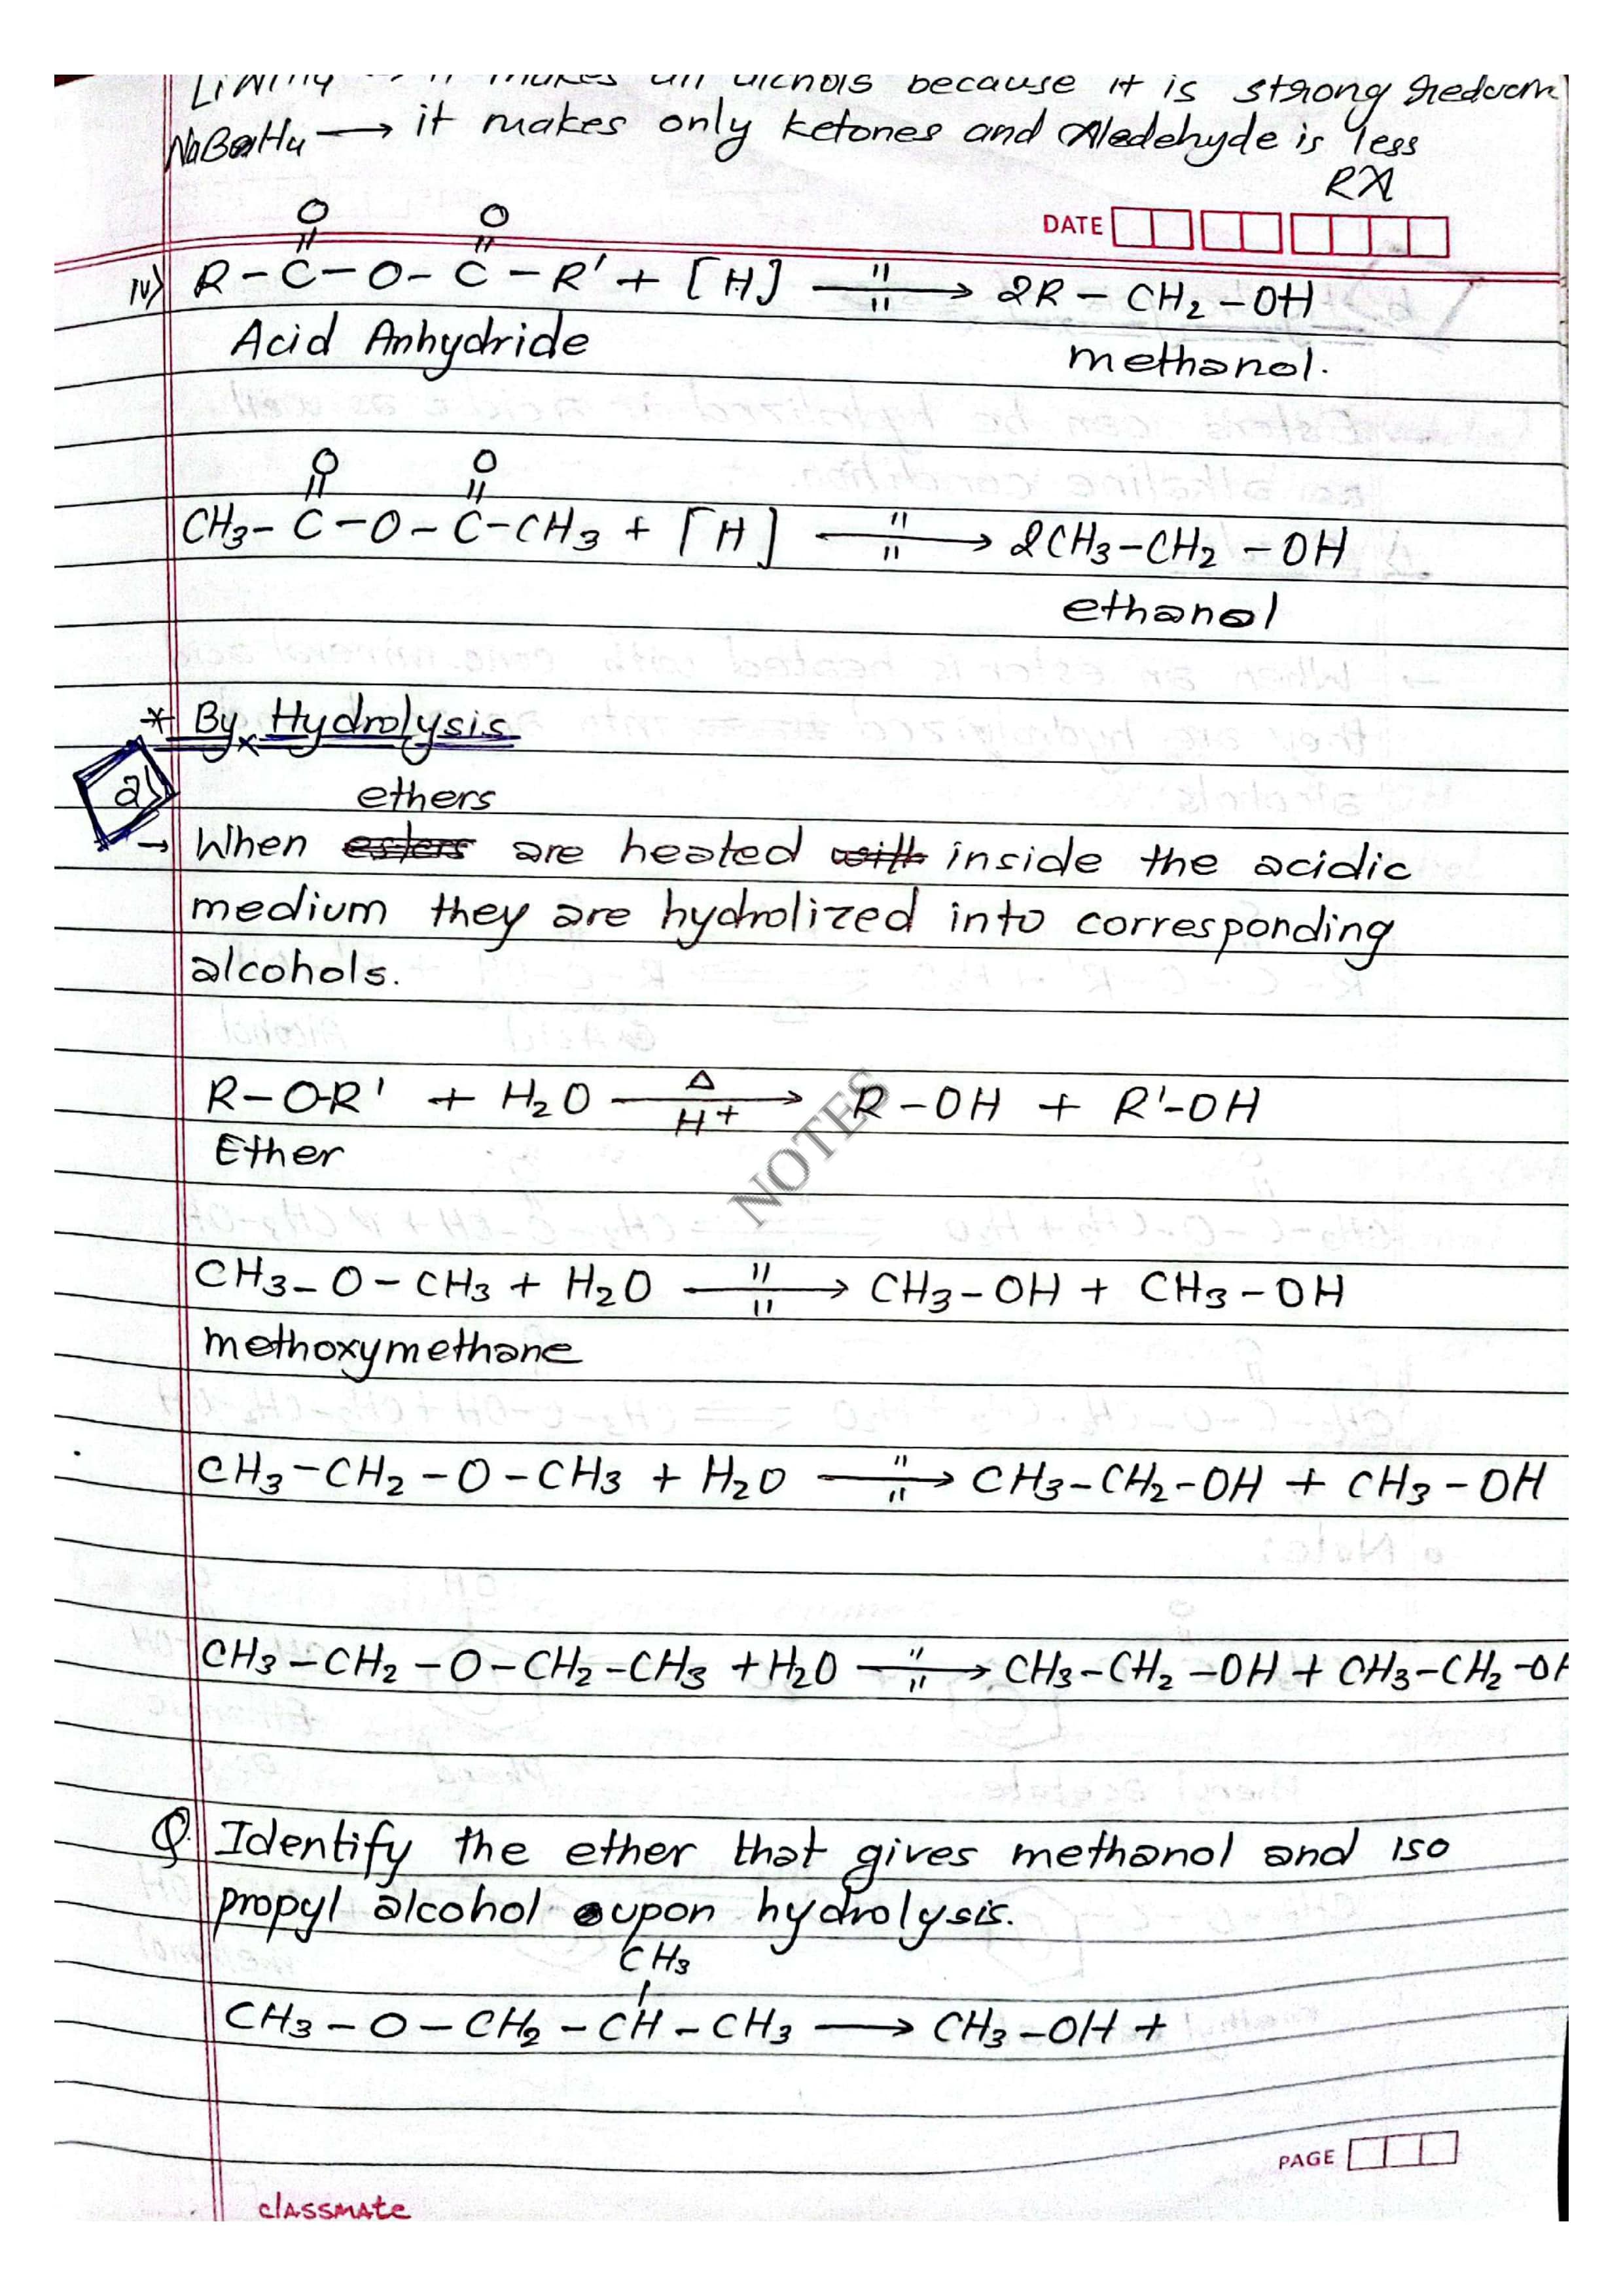 it makes all alcohols because it is strong
NaBH4 → it makes only ketones and Aledehyde is less
RX
DATE
iv) R-C(=O)-O-C(=O)-R' + [H] —"/"→ 2R-CH2-OH
Acid Anhydride methanol.
CH3-C(=O)-O-C(=O)-CH3 + [H] —"/"→ 2CH3-CH2-OH
ethanol
* By Hydrolysis
a)
ethers
→ When esters are heated with inside the acidic
medium they are hydrolized into corresponding
alcohols.
R-O-R' + H2O —Δ/H+→ R-OH + R'-OH
Ether
NOTES
CH3-O-CH3 + H2O —"/"→ CH3-OH + CH3-OH
methoxymethane
CH3-CH2-O-CH3 + H2O —"/"→ CH3-CH2-OH + CH3-OH
CH3-CH2-O-CH2-CH3 + H2O —"/"→ CH3-CH2-OH + CH3-CH2-OH
Q. Identify the ether that gives methanol and iso
propyl alcohol upon hydrolysis.
CH3
CH3-O-CH2-CH-CH3 → CH3-OH +
PAGE
classmate